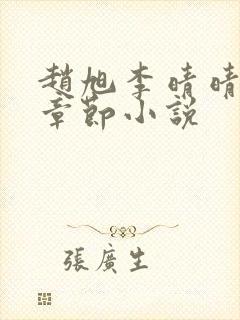 趙旭李晴晴
章節小説
張廣生